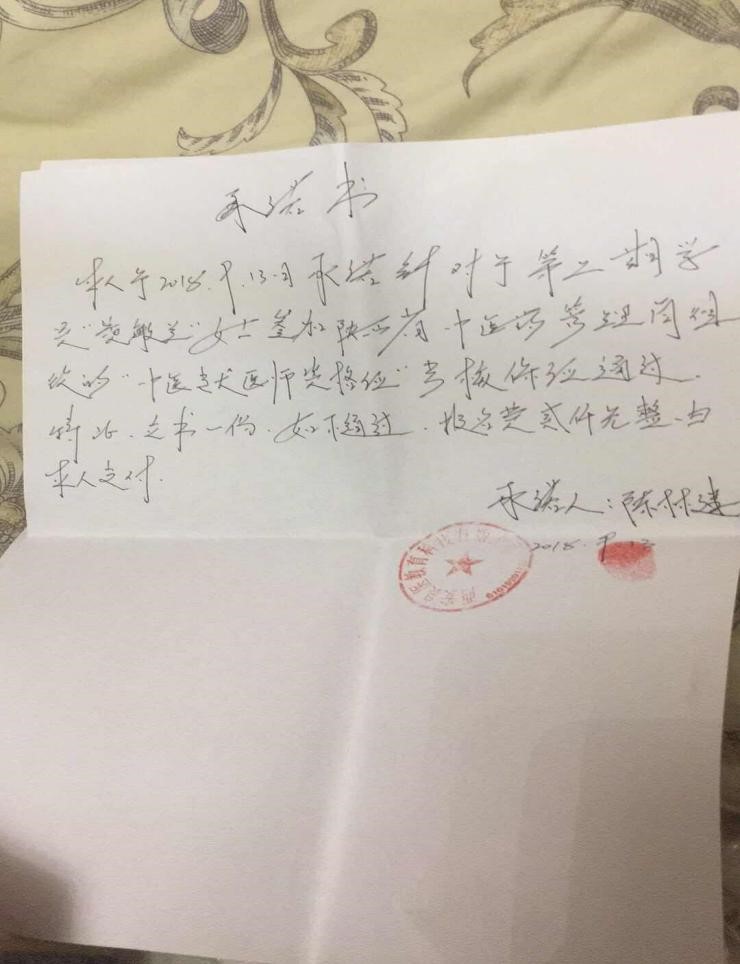 承诺书
本人于2018.9.13日承诺针对于第二期学
员"黄敏兰"女士参加陕西省中医药管理局组
织的"中医专长医师资格证"考核保证通过.
特此.立书一份.如不通过.报名费贰仟元整.由
本人支付.
承诺人:陈林建
2018.9.13
教育科技有限